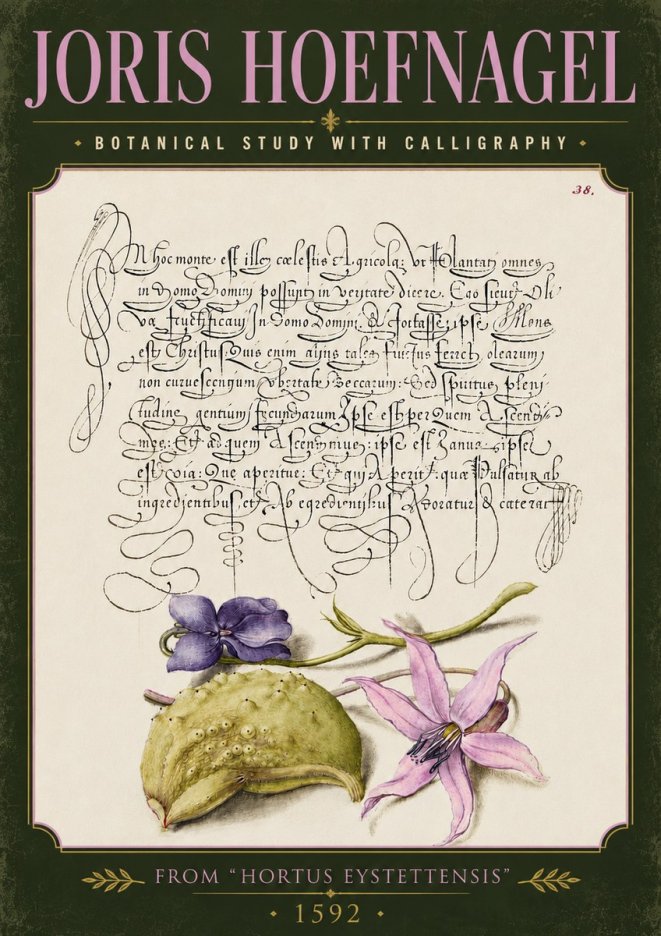 JORIS HOEFNAGEL
BOTANICAL STUDY WITH CALLIGRAPHY
38.
hoc monte est ille cælestis Agricola: Vt Plantat omnes
in Domo Domini possunt in veritate dicere. Ego sicut Oli
va fructificaui In Domo Domini. Et fortasse ipse Mons
est Christus. Quis enim tales ferret olearum
non Vbertate Beccarum: Sed spiritus pleni
tudine gentium fecundarum Ipse est per Quem Ascendi
mus: Et ad quem Ascendimus: ipse est Ianua: ipse
est via: Que aperitur: Et qui Aperit: quæ Pulsatur ab
ingredientibus, et Ab egredientibus Adoratur & cæterar
FROM “HORTUS EYSTETTENSIS”
1592